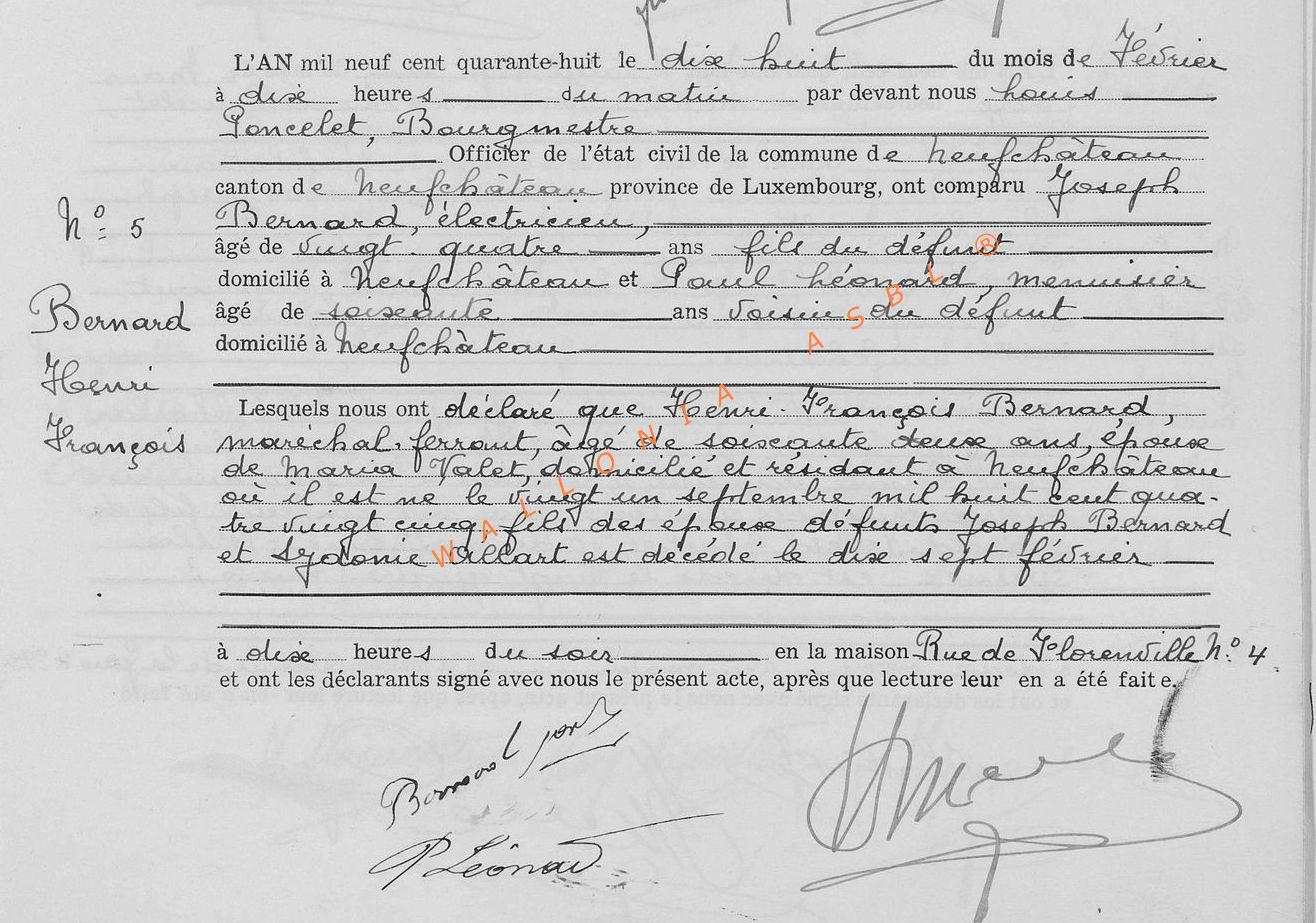 L'AN mil neuf cent quarante-huit le dix huit du mois de Février
à dix heures du matin par devant nous Louis
Poncelet, Bourgmestre
Officier de l'état civil de la commune de Neufchâteau
canton de Neufchâteau province de Luxembourg, ont comparu Joseph
N° 5
Bernard, électricien,
âgé de vingt quatre ans fils du défunt
domicilié à Neufchâteau et Paul Léonard, menuisier
âgé de soixante ans voisin du défunt
domicilié à Neufchâteau
Bernard
Henri
François
Lesquels nous ont déclaré que Henri-François Bernard,
maréchal-ferrant, âgé de soixante deux ans, époux
de Maria Valet, domicilié et résidant à Neufchâteau
où il est né le vingt un septembre mil huit cent qua-
tre vingt cinq fils des époux défunts Joseph Bernard
et Sydonie Willart est décédé le dix sept février
à dix heures du soir en la maison Rue de Florenville N° 4
et ont les déclarants signé avec nous le présent acte, après que lecture leur en a été faite.
Bernard
P Léonard
WALLONIA ASBL ®